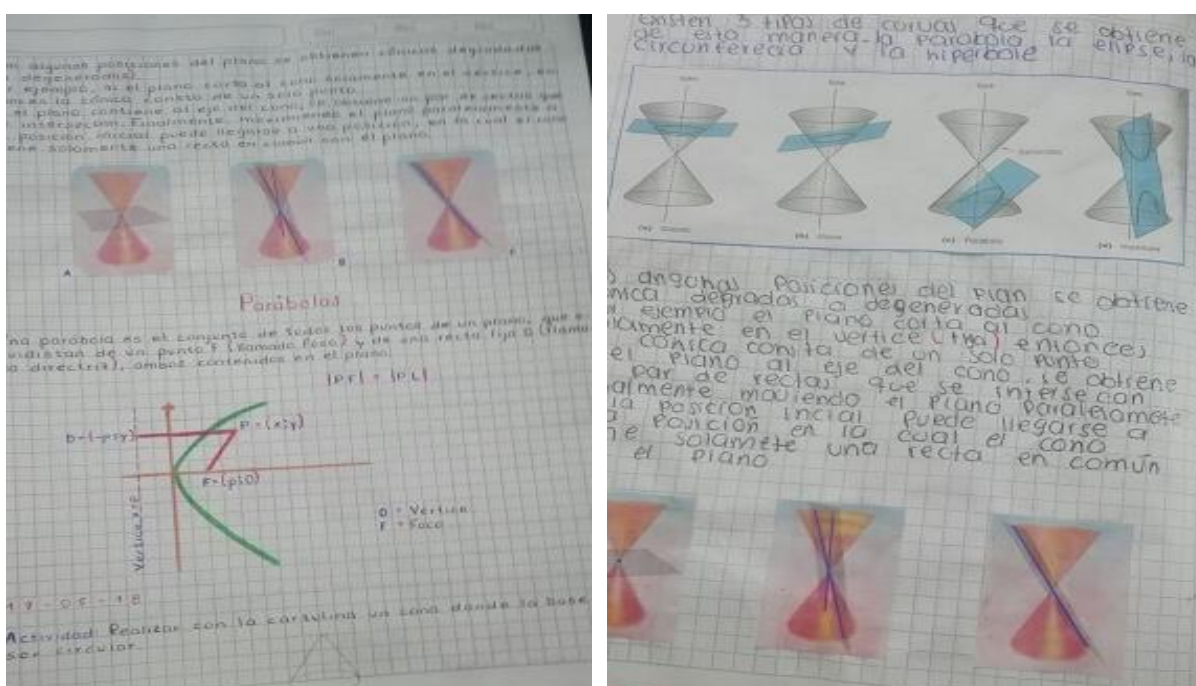 en algunas posiciones del plano se obtienen cónicas degradadas
degeneradas).
ejemplo, si el plano corta al cono solamente en el vértice, en
la cónica consta de un solo punto.
el plano contiene al eje del cono, se obtiene un par de rectas que
intersecan. Finalmente, moviendo el plano paralelamente a
posición inicial puede llegarse a una posición, en la cual el cono
solamente una recta en común con el plano.
A
B
C
Parábolas
na parábola es el conjunto de todos los puntos de un plano, que e
de un punto F (llamado Foco) y de una recta fija D (llama
directriz), ambos contenidos en el plano.
|PF| = |PL|
D=(-p;y)
P=(x;y)
F=(p;0)
O = Vertice
F = Foco
17-05-18
Actividad: Realizar con la cartulina un cono donde la base
ser circular.
existen 3 tipos de corvas que se obtiene
de esta manera la parabola la elipse, la
circunferecia y la hiperbole
(c) Parábola
angunas posiciones del plan se obtiene
nica degradas o degeneradas
ejemplo el plano corta al cono
lamente en el vertice entonces
conica consita de un solo punto
el plano al eje del cono se obtiene
par de rectas que se intersecan
almente moviendo el plano paralelamete
la posicion incial puede llegarse a
posicion en la cual el cono
ne solamete una recta en común
el plano